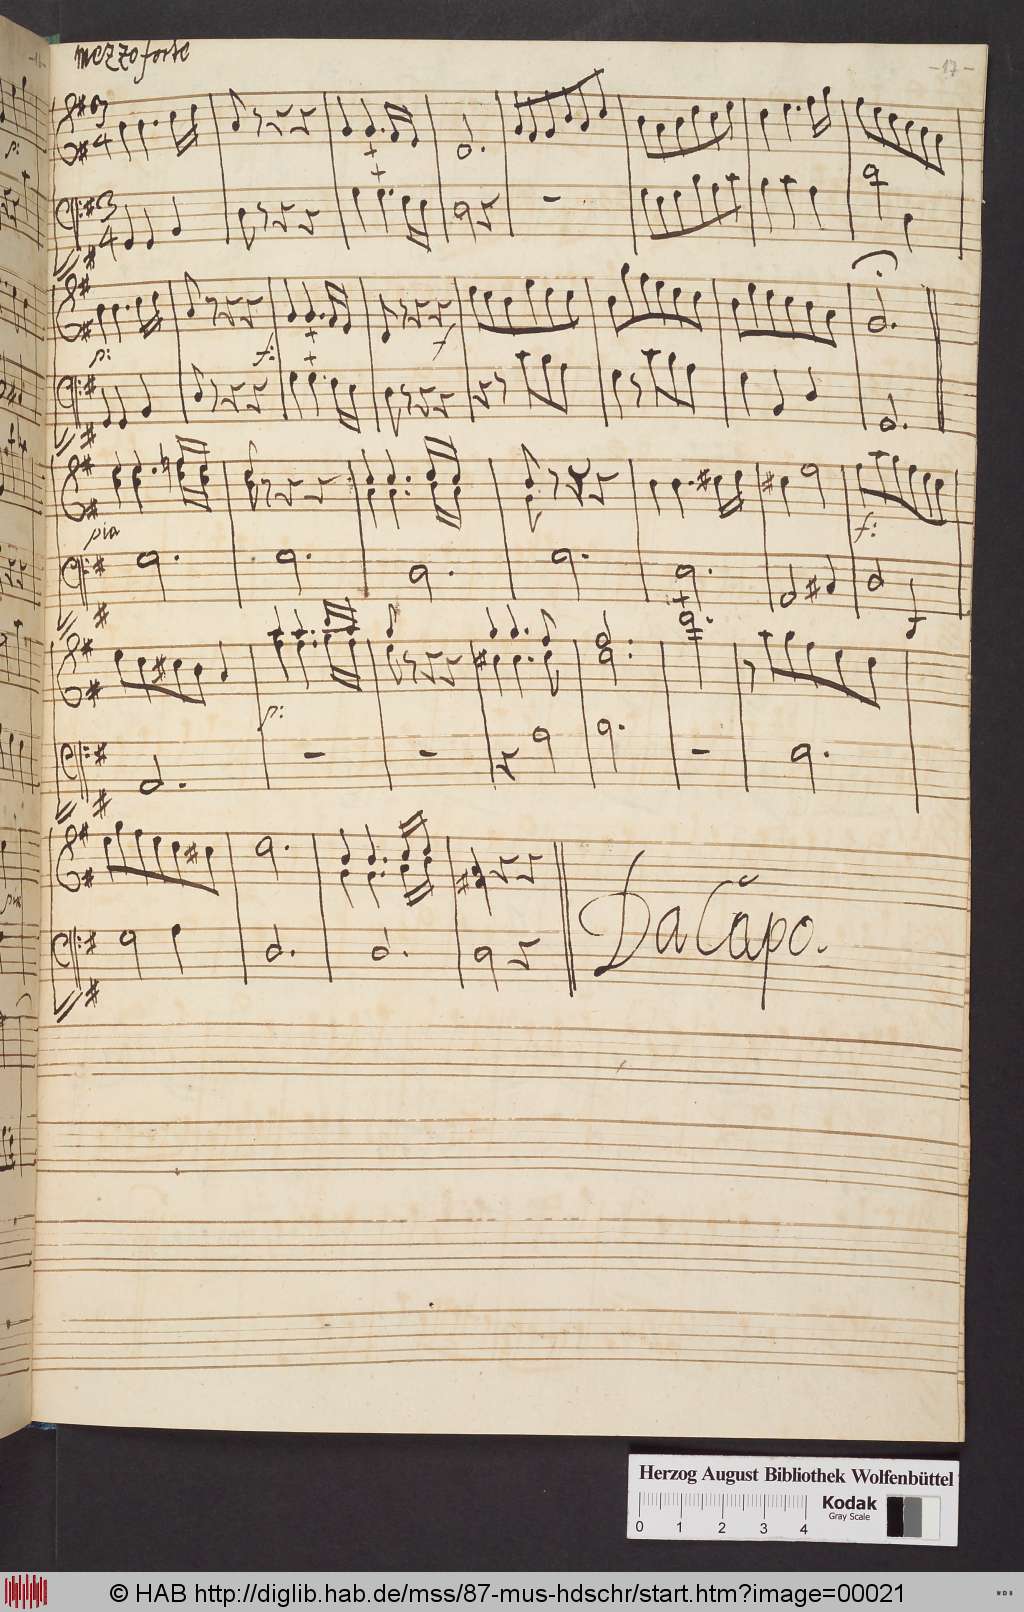 mezzo forte
-17-
3
4
p:
3
4
p:
f:
f
pia
f:
p:
Da Capo.
Herzog August Bibliothek Wolfenbüttel
Kodak
Gray Scale
0 1 2 3 4
© HAB http://diglib.hab.de/mss/87-mus-hdschr/start.htm?image=00021